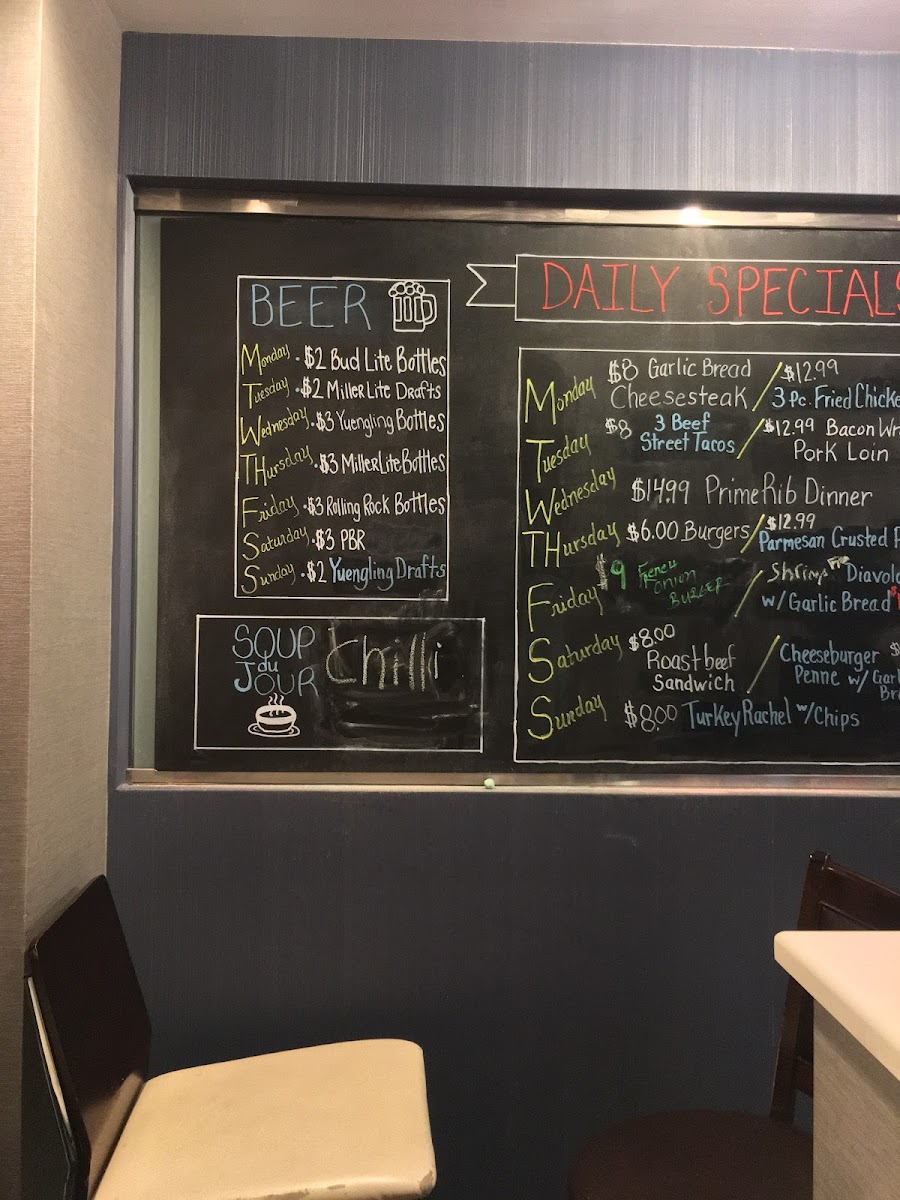 BEER
Monday · $2 Bud Lite Bottles
Tuesday · $2 Miller Lite Drafts
Wednesday · $3 Yuengling Bottles
THursday · $3 Miller Lite Bottles
Friday · $3 Rolling Rock Bottles
Saturday · $3 PBR
Sunday · $2 Yuengling Drafts
SOUP
du
JOUR
Chilli
DAILY SPECIALS
Monday
$8 Garlic Bread
Cheesesteak
/ $12.99
3 Pc. Fried
Tuesday
$8 3 Beef
Street Tacos
/ $12.99 Bacon
Pork Loin
Wednesday
$14.99 Prime Rib Dinner
THursday
$6.00 Burgers / $12.99
Parmesan Crusted
Friday
$9 French
Onion
BURGER
/ Shrimp Fra
w/ Garlic Bread
Saturday
$8.00
Roast beef
Sandwich
/ Cheeseburger
Penne w/
Sunday
$8.00 Turkey Rachel w/ Chips